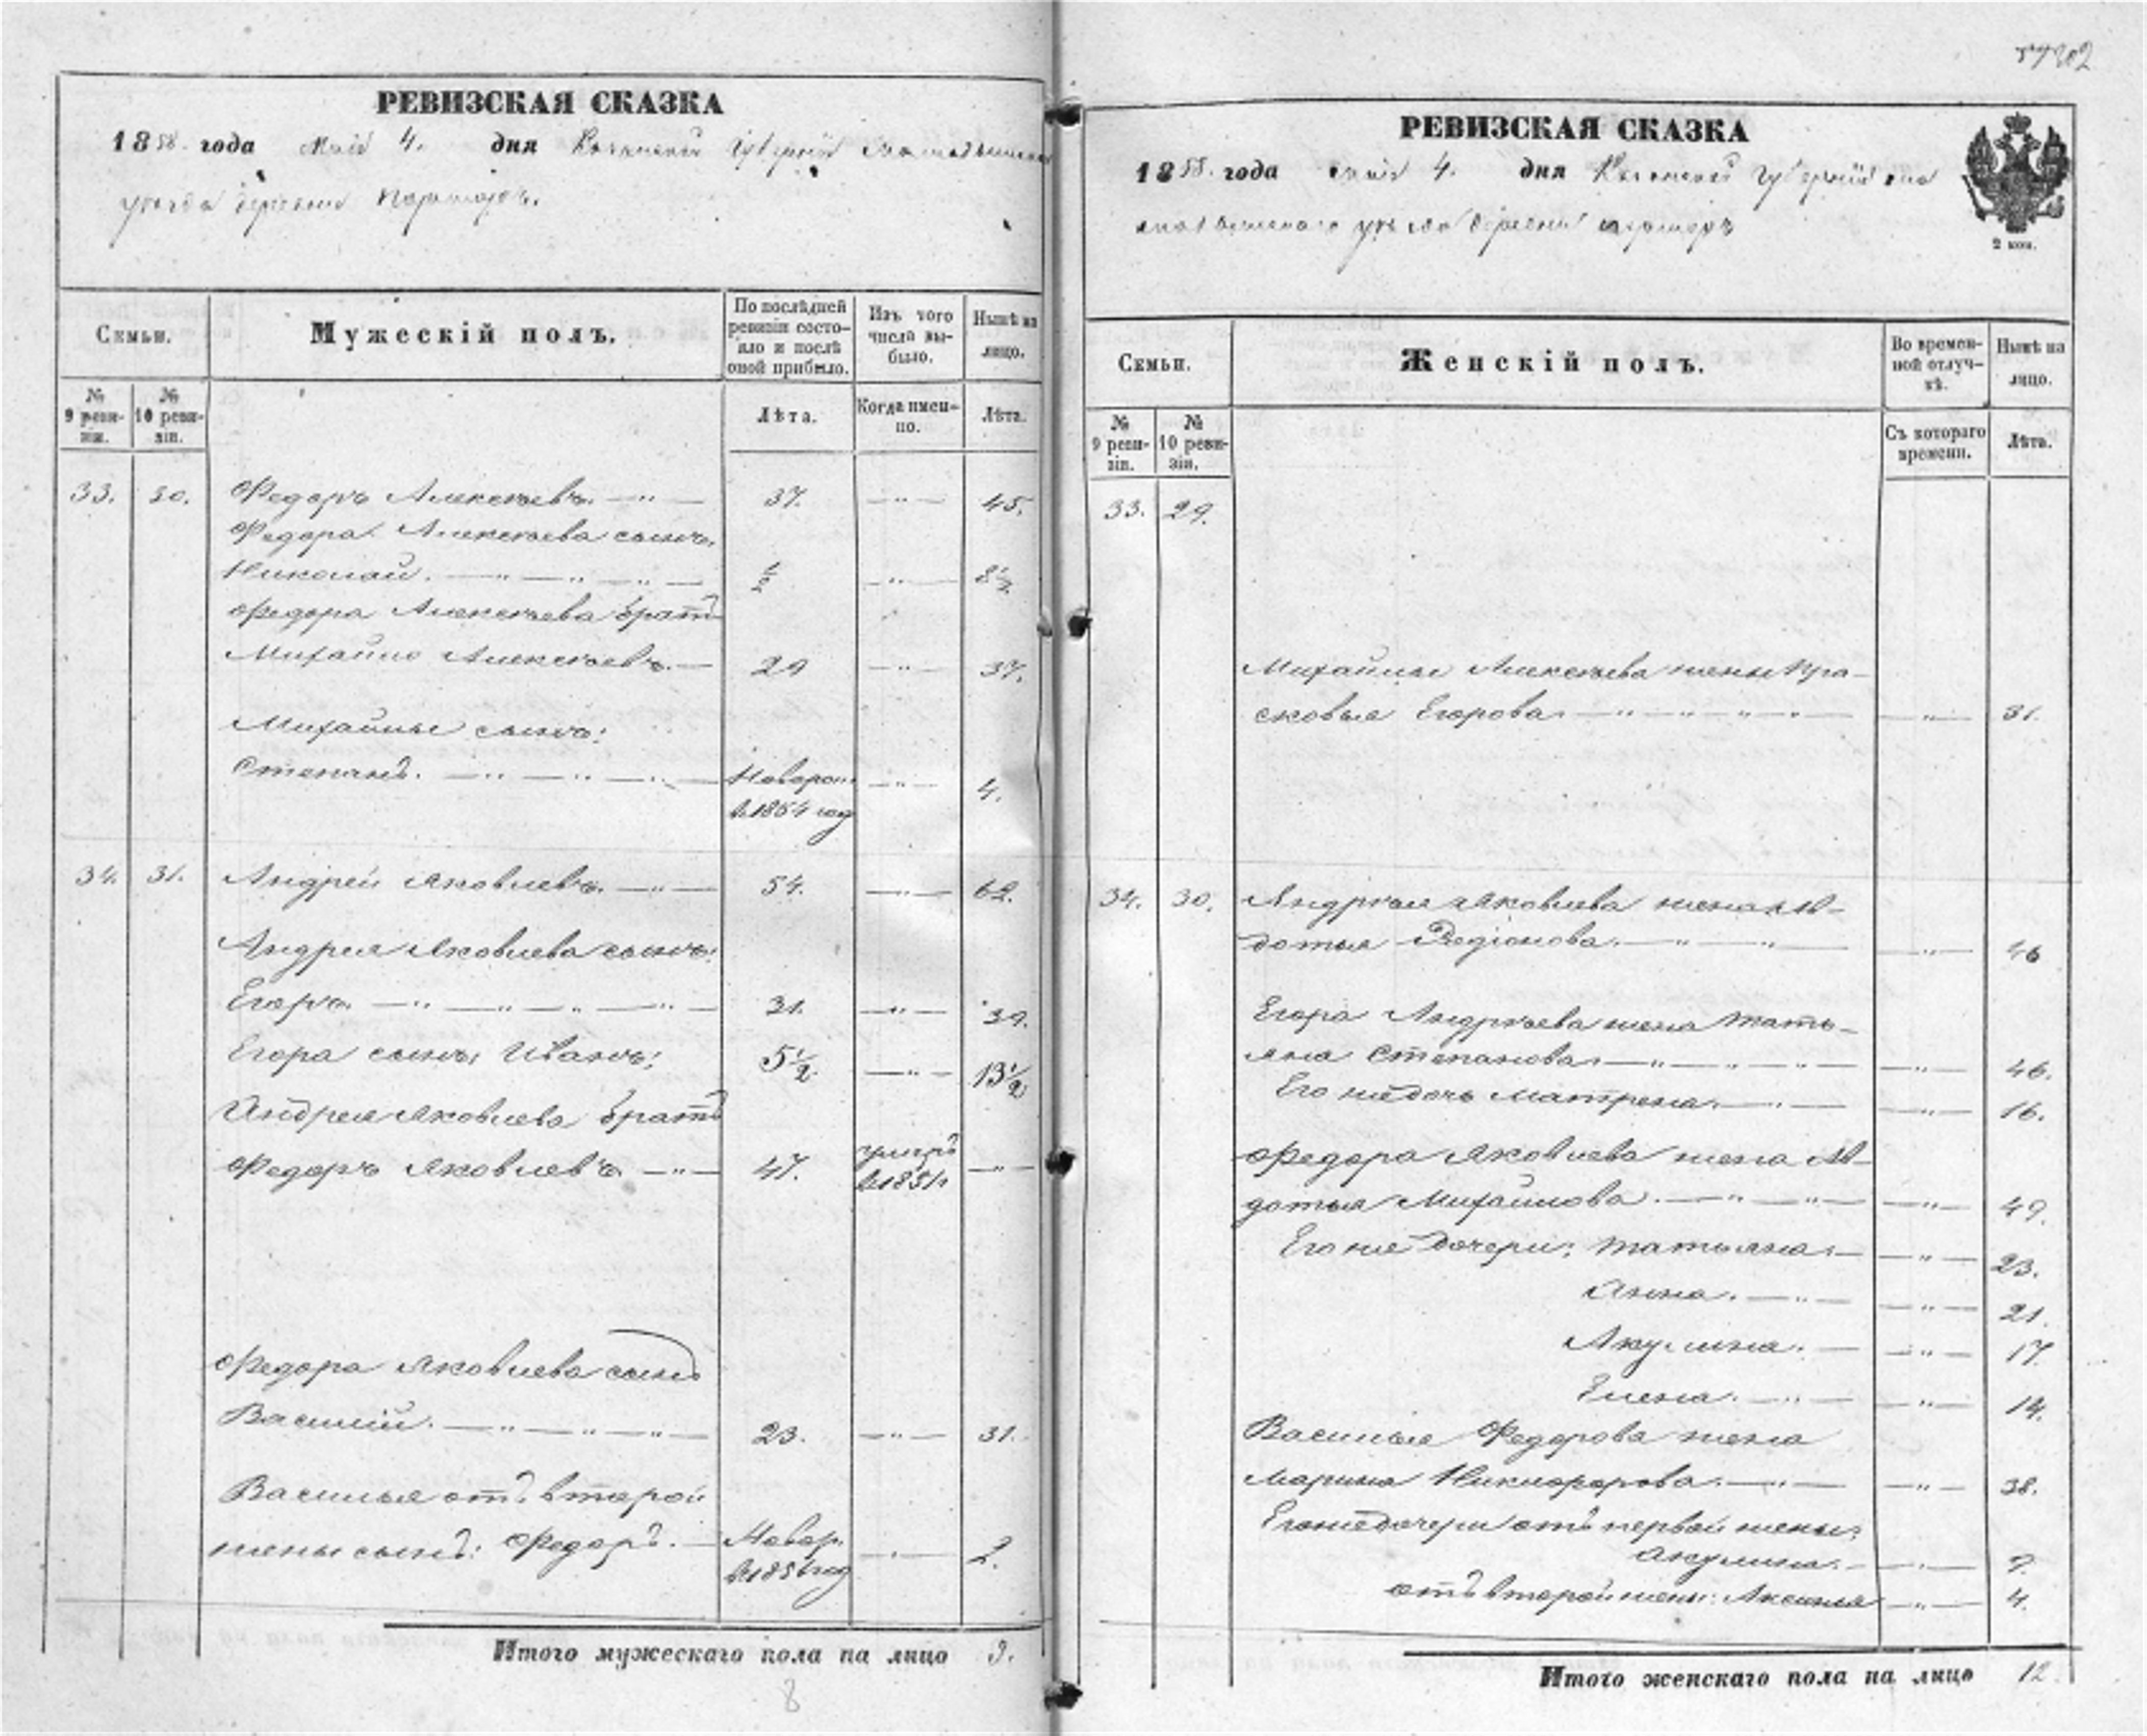 РЕВИЗСКАЯ СКАЗКА
1858. года Маія 4. дня Казанской Губерніи
уѣзда деревни
Семьи.
Мужескій полъ.
По послѣдней ревизіи состояло и послѣ оной прибыло.
Изъ того числа выбыло.
Нынѣ на лицо.
№ 9 ревизіи.
№ 10 ревизіи.
Лѣта.
Когда именно.
Лѣта.
33. 30. Федоръ Алексѣевъ. — " — 37. — " — 45.
Федора Алексѣева сынъ,
Николай. — " — " — " — 1/2 — " — 8 1/2
Федора Алексѣева братъ
Михайло Алексѣевъ. — 29 — " — 37.
Михайлы сынъ:
Степанъ. — " — " — " — Новорож. в. 1854 год — " — 4.
34. 31. Андрей Яковлевъ. — " — 54. — " — 62.
Андрея Яковлева сынъ:
Егоръ. — " — " — " — 31. — " — 39.
Егора сынъ, Иванъ: 5 1/2 — " — 13 1/2
Андрея Яковлева братъ
Федоръ Яковлевъ — " — 47. умеръ в. 1851 — " —
Федора Яковлева сынъ
Василій. — " — " — " — 23. — " — 31.
Василья отъ второй
жены сынъ: Федоръ. — Новор. в. 1856 год — " — 2.
Итого мужескаго пола на лицо 9.
8
202
РЕВИЗСКАЯ СКАЗКА
1858. года маія 4. дня Казанской Губерніи
уѣзда деревни
2 коп.
Семьи.
Женскій полъ.
Во временной отлучкѣ.
Нынѣ на лицо.
№ 9 ревизіи.
№ 10 ревизіи.
Съ котораго времени.
Лѣта.
33. 29.
Михайлы Алексѣева жена Пра-
сковья Егорова. — " — " — " — — " — 31.
34. 30. Андрея Яковлева жена Ав-
дотья Родіонова. — " — " — — " — 46
Егора Андрѣева жена Тать-
яна Степанова. — " — " — " — — " — 46.
Его же дочь Матрена. — " — — " — 16.
Федора Яковлева жена Ав-
дотья Михайлова. — " — " — — " — 49.
Его же дочери: Татьяна. — — " — 23.
Анна. — " — — " — 21.
Акулина. — — " — 17.
Елена. — " — — " — 14.
Василья Федорова жена
Марина Никифорова. — " — — " — 38.
Его же дочери отъ первой жены:
Акулина. — — " — 9.
отъ второй жены: Аксинья — " — 4.
Итого женскаго пола на лицо 12